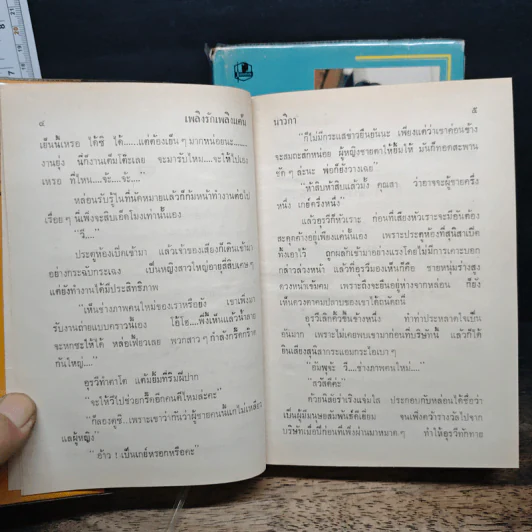 ๔ เพลิงรักเพลิงแค้น
เย็นนี้เหรอ ได้ซิ ได้......แต่ต้องเย็น ๆ มากหน่อยนะ......
งานยุ่ง นี่ก็งานเต็มโต๊ะเลย จะมารับไหม....จะให้ไปเอง
เหรอ ที่ไหน....จ้ะ....จ้ะ...."
หล่อนรับรู้ในที่นัดหมายแล้วก็ก้มหน้าทำงานต่อไป
เรื่อย ๆ นี่เพิ่งจะสิบเอ็ดโมงเท่านั้นเอง
"รี...."
ประตูห้องเปิดเข้ามา แล้วเจ้าของเสียงก็เดินเข้ามา
อย่างกระฉับกระเฉง เป็นหญิงสาวใหญ่อายุสี่สิบเศษ ๆ
แต่ยังทำงานได้มีประสิทธิภาพ
"เห็นช่างภาพคนใหม่ของเราหรือยัง เขาเพิ่งมา
รับงานถ่ายแบบคราวนี้เอง โอ้โฮ....พี่งี้เห็นแล้วน้ำลาย
จะหกซะให้ได้ หล่อเฟี้ยวเลย พวกสาว ๆ กำลังกรี๊ดกร๊าด
กันใหญ่...."
อุรวีทำตาโต แต้มยิ้มที่ริมฝีปาก
"จะให้รีไปช่วยกรี๊ดอีกคนดีไหมล่ะคะ"
"ก็ลองดูซี....เพราะเขาว่ากันว่าผู้ชายคนนี้แกไม่เหลียว
แลผู้หญิง"
"อ้าว ! เป็นเกย์หรอกหรือคะ"
นาวิกา ๕
"ก็ไม่มีกระแสข่าวยืนยันนะ เพียงแต่ว่าเขาค่อนข้าง
จะสมถะสักหน่อย ผู้หญิงชายตาให้ยิ้มให้ มันก็ทอดสะพาน
ชัด ๆ ล่ะนะ พ่อก็ยังวางเฉย"
"ห้าสิบห้าสิบแล้วมั้ง คุณสา ว่าอาจจะผู้ชายครึ่ง
หนึ่ง เกย์ครึ่งหนึ่ง"
แล้วอุรวีก็หัวเราะ ก่อนที่เสียงหัวเราะจะมีอันต้อง
สะดุดค้างอยู่เพียงแค่นั้นเอง เพราะประตูห้องที่สุนิสาเปิด
ทิ้งเอาไว้ ถูกผลักเข้ามาอย่างแรงโดยไม่มีการเคาะบอก
กล่าวล่วงหน้า แล้วที่อุรวีมองเห็นก็คือ ชายหนุ่มร่างสูง
ดวงหน้าเข้มคม เพราะถึงจะยืนอยู่ห่างจากหล่อน ก็ยัง
เห็นดวงตาคมปลาบของเขาได้ถนัดถนี่
อุรวีเลิกคิ้วขึ้นข้างหนึ่ง ทำท่าประหลาดใจเป็น
อันมาก เพราะไม่เคยพบเขามาก่อนที่บริษัทนี้ แล้วก็ได้
ยินเสียงสุนิสากระแอมกระไอเบา ๆ
"อัมพุจ้ะ รี....ช่างภาพคนใหม่...."
"สวัสดีค่ะ"
ด้วยนิสัยร่าเริงแจ่มใส ประกอบกับหล่อนได้ชื่อว่า
เป็นผู้มีมนุษยสัมพันธ์ดีเยี่ยม จนเพิ่งคว้ารางวัลไปจาก
บริษัทเมื่อปีก่อนดีเพิ่งผ่านมาหมาด ๆ ทำให้อุรวีทักทาย